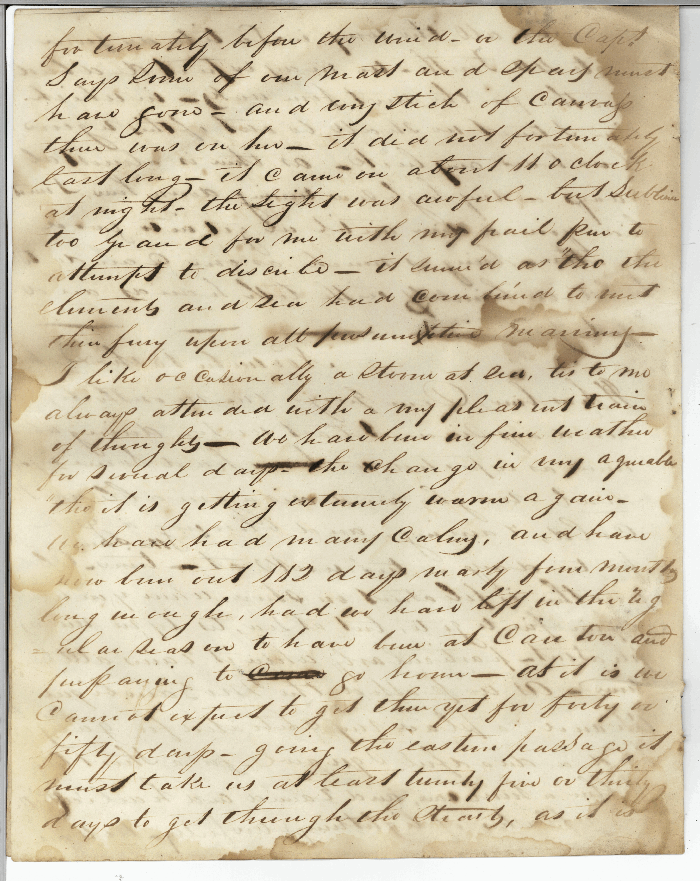 fortunately before the wind - or the Capt
Says Some of our mast and spars must
have gone - and evry stick of Canvass
there was on her - it did not fortunately
last long - it came on about 11 oclock
at night - the sight was awful - but Sublime
too grand for me with my frail pen to
attempt to discribe - it seem'd as 'tho the
elements and sea had combined to vent
their fury upon all
I like occasionally a Storm at sea, tis to me
always attended with a very pleasent train
of thoughts - We have been in fine weather
for several days - the change is very agreeable
'tho it is getting extremely warm again -
We have had many Calms, and have
now been out 112 days nearly four months
long enough, had we have left in the reg
= ular season to have been at Canton and
prepairing to go home - as it is we
Cannot expect to get there yet for forty or
fifty days - going the eastern passage it
must take us at least twenty five or thirty
days to get through the Straits, as it is